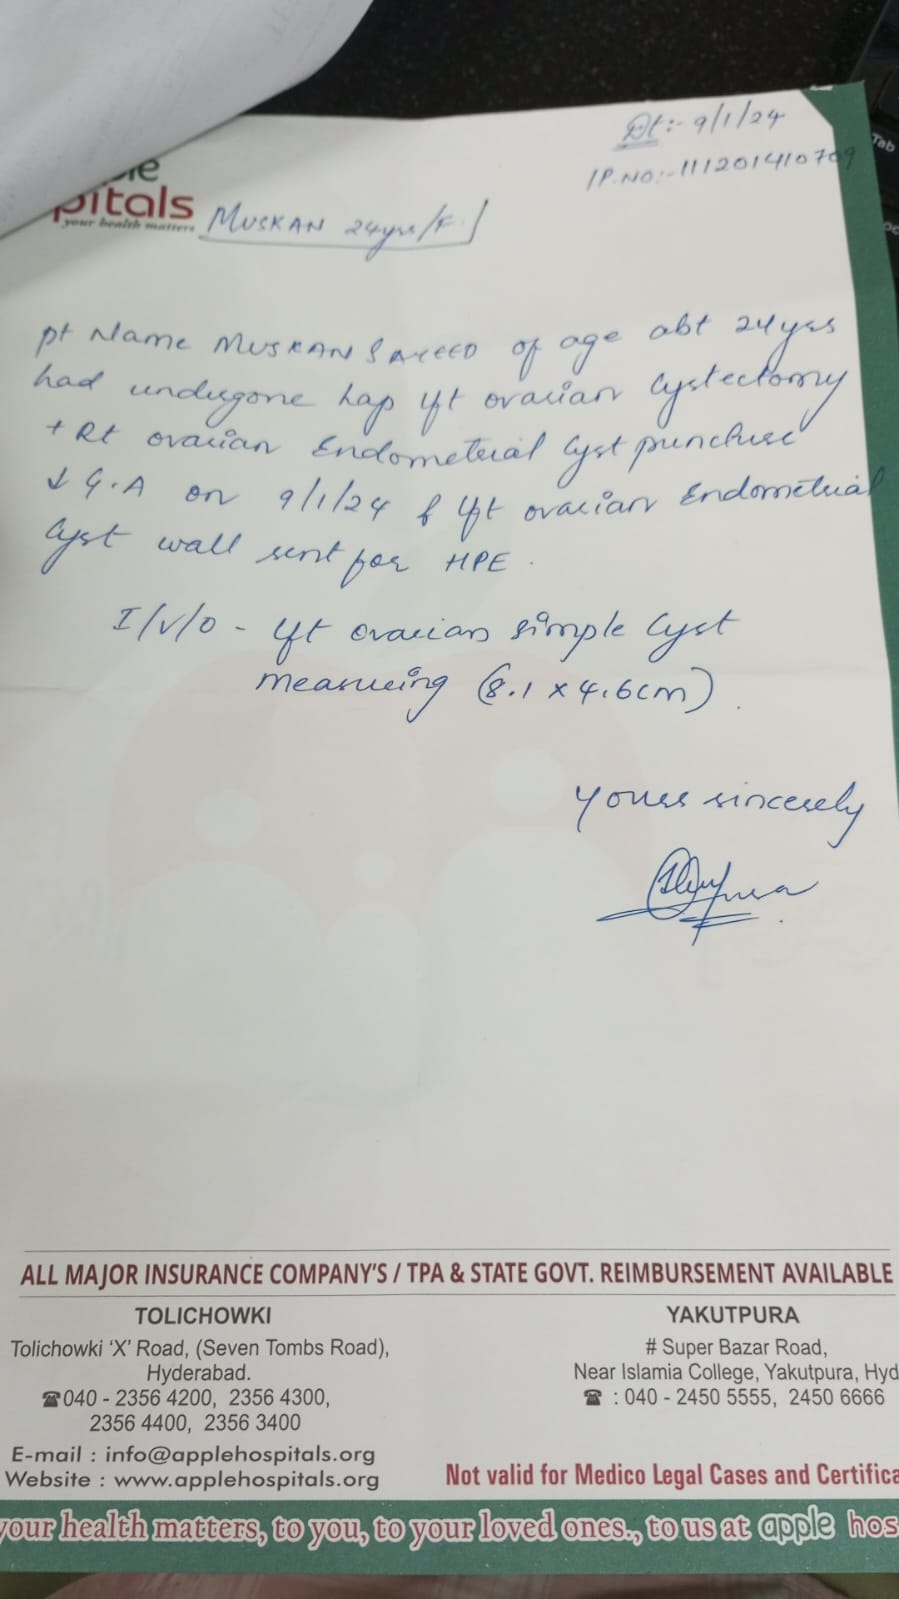 Dt:- 9/1/24
IP.NO:- 111201410709
pitals
your health matters
MUSKAN 24yrs/F
pt Name MUSKAN SAYEED of age abt 24yrs
had undergone Lap lft ovarian Cystectomy
+ Rt ovarian Endometrial Cyst puncture
↓ G.A on 9/1/24 & lft ovarian Endometrial
Cyst wall sent for HPE.
I/V/O - lft ovarian simple Cyst
measuring (8.1 x 4.6cm).
Yours sincerely
ALL MAJOR INSURANCE COMPANY'S / TPA & STATE GOVT. REIMBURSEMENT AVAILABLE
TOLICHOWKI
Tolichowki 'X' Road, (Seven Tombs Road),
Hyderabad.
☎040 - 2356 4200, 2356 4300,
2356 4400, 2356 3400
E-mail : info@applehospitals.org
Website : www.applehospitals.org
YAKUTPURA
# Super Bazar Road,
Near Islamia College, Yakutpura, Hyd
☎ : 040 - 2450 5555, 2450 6666
Not valid for Medico Legal Cases and Certifica
your health matters, to you, to your loved ones., to us at apple hos